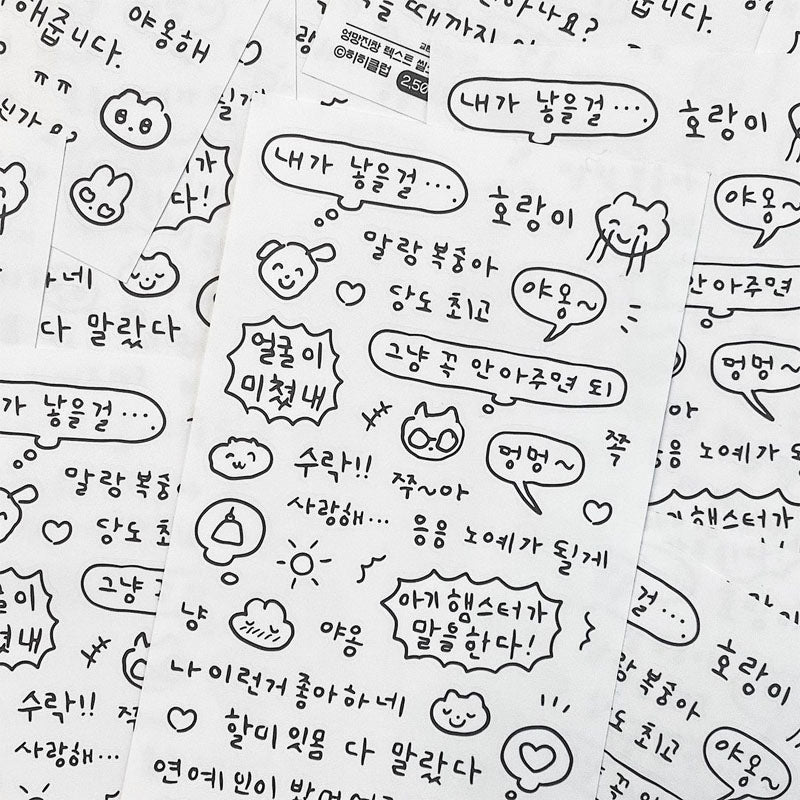 해줍니다.
야옹해
ㅠㅠ
엉망진창 텍스트 씰
©히히클럽
2,50
때까지
하나요?
니다.
내가 낳을걸....
호랑이
야옹~
안아주면
멍멍~
노예가 되
햄스터가
내가 낳을걸....
호랑이
말랑 복숭아
당도 최고
야옹~
얼굴이
미쳤내
그냥 꼭 안아주면 되
수락!!
쭈~아
멍멍~
쪽
사랑해...
응응 노예가 될게
냥
야옹
아기 햄스터가
말을한다!
나 이런거 좋아하네
할미 잇몸 다 말랐다
연예인이
다!
네
다 말랐다
가 낳을걸....
말랑 복숭
당도 최
그냥
이
쳤내
수락!!
사랑해...
걸....
호랑이
랑 복숭아
도 최고
야옹~
꼭 안아